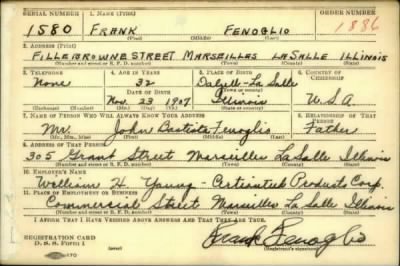 SERIAL NUMBER 1. NAME (Print) ORDER NUMBER
1580 FRANK FENOGLIO 1886
(First) (Middle) (Last)
2. ADDRESS (Print)
FILLEBROWNE STREET MARSEILLES LASALLE ILLINOIS
(Number and street or R. F. D. number) (Town) (County) (State)
3. TELEPHONE 4. AGE IN YEARS 5. PLACE OF BIRTH 6. COUNTRY OF CITIZENSHIP
None 32 Dalzell-La Salle
DATE OF BIRTH (Town or county)
Nov. 23 1907 Illinois U.S.A
(Mo.) (Day) (Yr.) (State or country)
7. NAME OF PERSON WHO WILL ALWAYS KNOW YOUR ADDRESS 8. RELATIONSHIP OF THAT PERSON
Mr. John Baptista Fenoglio Father
(Mr., Mrs., Miss) (First) (Middle) (Last)
9. ADDRESS OF THAT PERSON
305 Grand Street Marseilles LaSalle Illinois
(Number and street or R. F. D. number) (Town) (County) (State)
10. EMPLOYER'S NAME
William H. Young - Certainteed Products Corp.
11. PLACE OF EMPLOYMENT OR BUSINESS
Commercial Street Marseilles La Salle Illinois
(Number and street or R. F. D. number) (Town) (County) (State)
I AFFIRM THAT I HAVE VERIFIED ABOVE ANSWERS AND THAT THEY ARE TRUE.
REGISTRATION CARD
D. S. S. Form 1 Frank Fenoglio